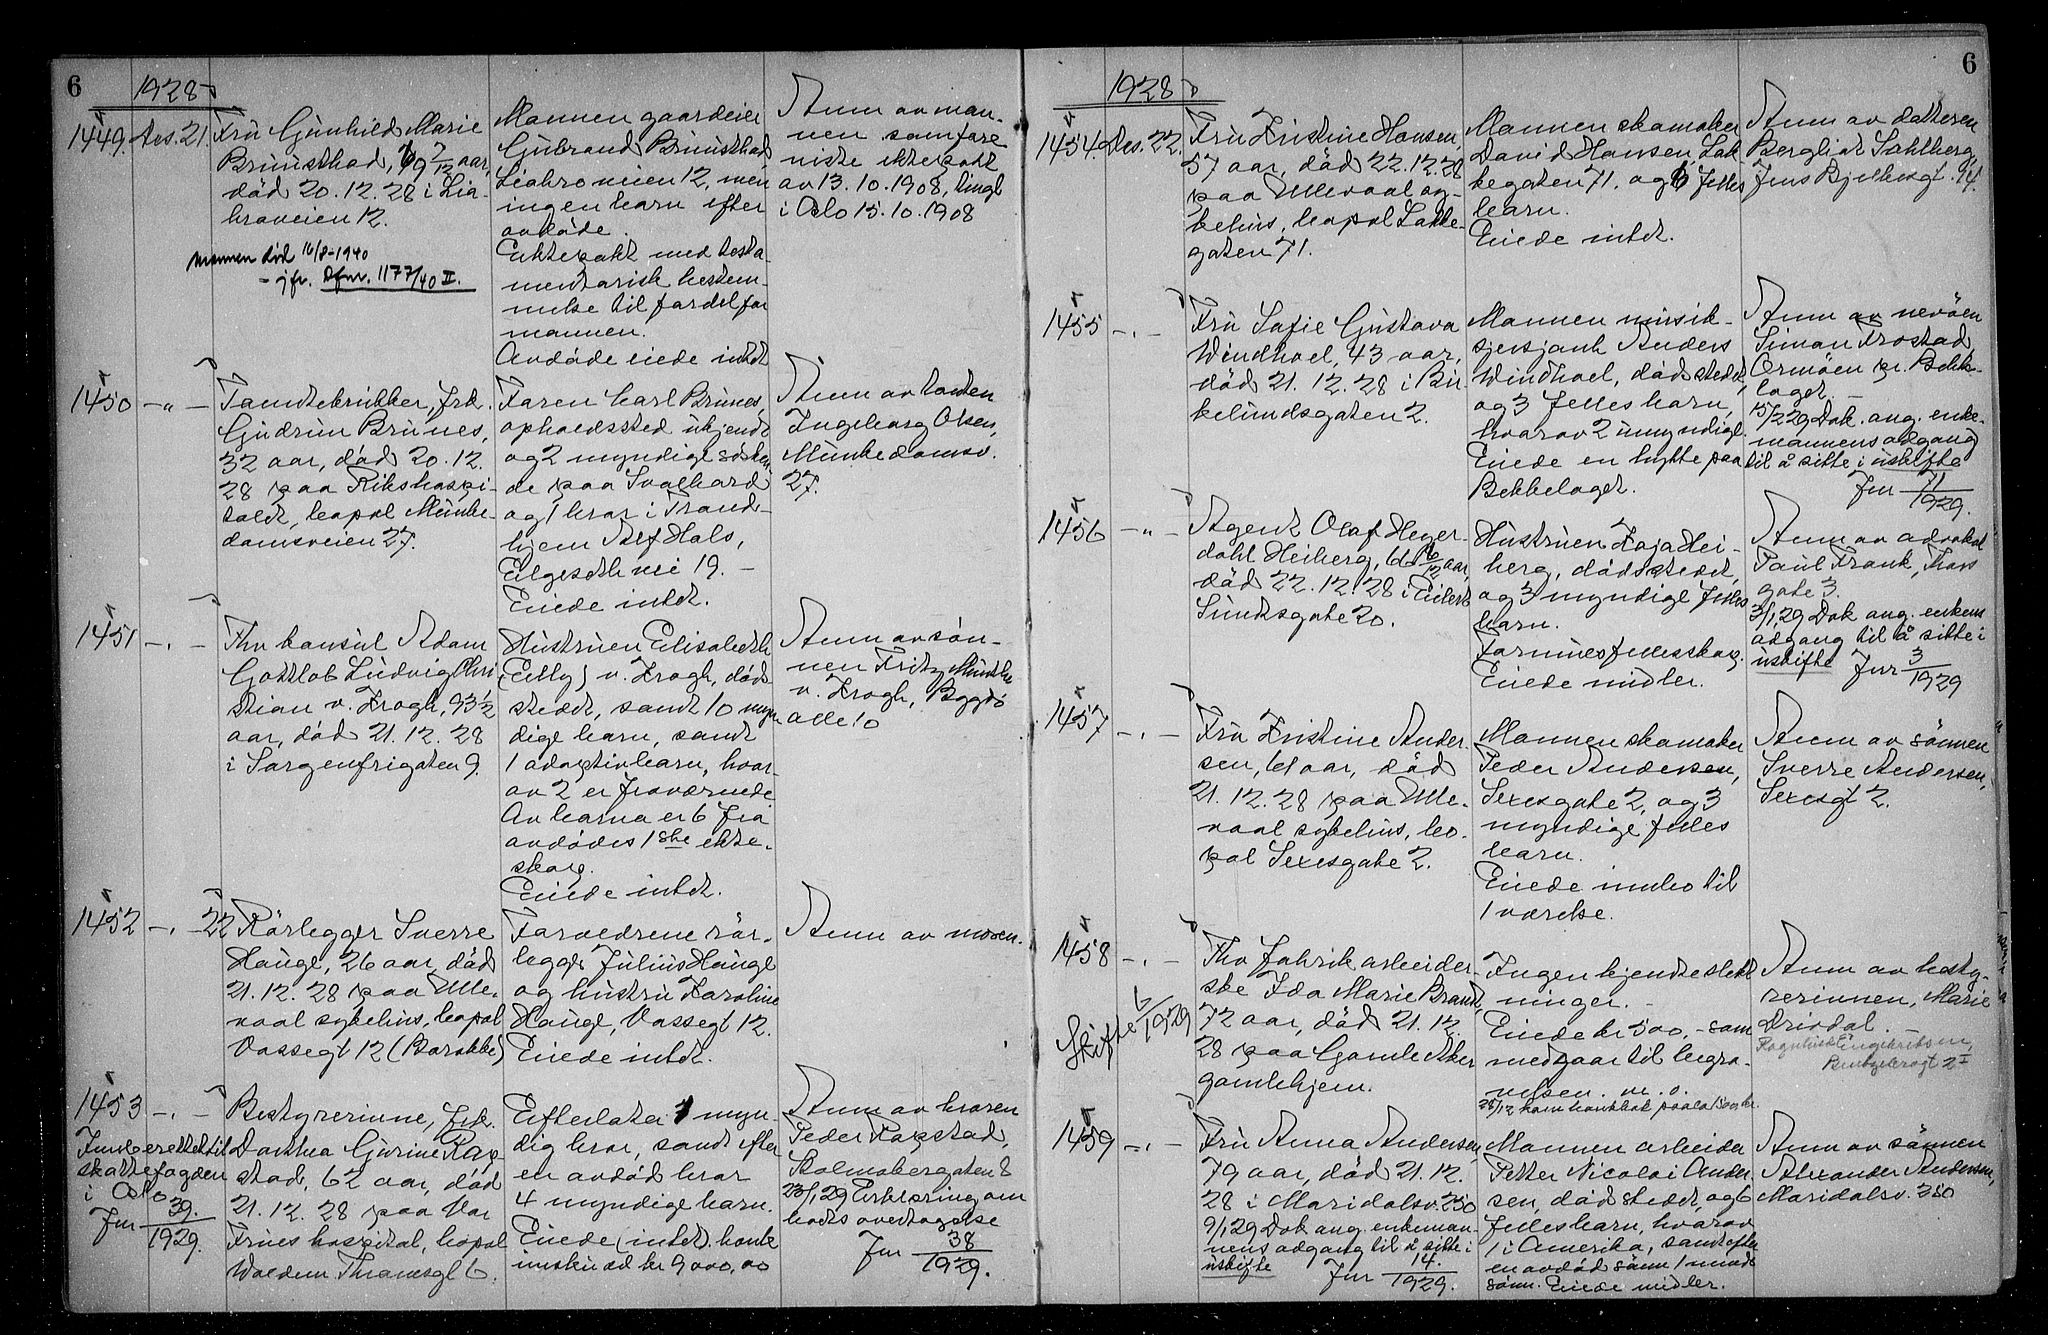 6
1928
1449. Des. 21.
Fru Gunhild Marie
Brunsthad, 9/12 aar,
död 20.12.28 i Lia-
broveien 12.
Mannen död 16/8-1940
- jfr. Dfnr. 1177/40 II.
Mannen gaardeier
Gubrand Brunsthad
Liabroveien 12, men
ingen barn efter
avdöde.
Ektepakt med testa-
mentarisk bestem-
melse til fordel for
mannen.
Avdöde eiede intet
Anm av man-
nen som fore
viste ektepakt
av 13.10.1908, tingl
i Oslo 15.10.1908
1450 -"-
Tandtekniker, frk.
Gudrun Brunes,
32 aar, död 20.12.
28 paa Rikshospi-
talet, bopæl Munke-
damsveien 27.
Faren Carl Brunes,
opholdssted ukjendt
og 2 myndige sösken-
de paa Svalbard
og 1 bror i Trond-
hjem Alf Hals,
Elgeseth vei 19. -
Eiede intet.
Anm av tanten
Ingeborg Olsen,
Munkedamsv.
27.
1451 -.-
Fhv konsul Adam
Gottlob Ludvig Chri
stian v. Krogh, 93 1/2
aar, död 21.12.28
i Sorgenfrigaten 9.
Hustruen Elisabeth
(Elly) v. Krogh, död-
stedet, samt 10 myn
dige barn, samt
1 adoptivbarn, hvor-
av 2 er fraværende
Av barna er 6 fra
avdödes 1ste ekte-
skap.
Eiede intet.
Anm av søn-
nen Fritz Munthe
v. Krogh, Bygdö
alle 10
1452 -.- 22
Rörlegger Sverre
Hauge, 26 aar, död
21.12.28 paa Ulle-
vaal sykehus, bopæl
Vossegt 12 (Barakke)
Forældrene rör-
legger Julius Hauge
og hustru Karoline
Hauge, Vossegt 12.
Eiede intet.
Anm av moren.
1453 -.-
Innberettet til
skattefogden
i Oslo
Jnr 39.
1929.
Bestyrerinne, frk.
Dorthea Gurine Rap
stad, 62 aar, död
21.12.28 paa Vor
Frues hospital, bopæl
Waldem. Thranesgt 6.
Efterlater 1 myn
dig bror, samt efter
en avdöd bror
4 myndige barn.
Eiede (intet. bank
innskud kr 9000,00
Anm av broren
Peder Rapstad,
Stolmakergaten 8
23/1,29 Erklæring om
boets overtagelse
Jnr 38
1929.
6
1928
1454. Des. 22.
Fru Kristine Hansen,
57 aar, död 22.12.28
paa Ullevaal sy-
kehus, bopæl Lakke-
gaten 71.
Mannen skomaker
David Hansen, Lak
kegaten 71. og 6 felles
barn.
Eiede intet.
Anm av datteren
Bergliot Sahlberg,
Jens Bjelkesgt. 94.
1455 -.-
Fru Sofie Gustava
Windhoel, 43 aar,
död 21.12.28 i Bir-
kelundsgaten 2.
Mannen musik-
sjersjant Anders
Windhoel, dödsstedet,
og 3 felles barn,
hvorav 2 umyndige.
Eiede en hytte paa
Bekkelaget.
Anm av nevöen
Simon Frostad,
Ormöen pr. Bekke-
laget. -
15/2 29 Dok. ang. enke-
mannens adgang
til å sitte i uskifte
Jnr 71
1929.
1456 -"-
Agent Olaf Heyer-
dahl Heiberg, aar,
död 22.12.28 i Eilert
Sundtsgate 20.
Hustruen Kaja Hei-
berg, dödsstedet,
og 3 myndige felles
barn.
Formuesfellesskap.
Eiede midler.
Anm av advokat
Paul Frank, Thors
gate 3.
3/1,29 Dok ang. enkens
adgang til å sitte i
uskifte Jnr 3
1929
1457 -.-
Fru Kristine Ander-
sen, 61 aar, död
21.12.28 paa Ulle-
vaal sykehus, bo-
pæl Sexesgate 2.
Mannen skomaker
Peder Andersen,
Sexesgate 2, og 3
myndige felles
barn.
Eiede innbo til
1 værelse.
Anm av sönnen
Sverre Andersen,
Sexesgt 2.
1458 -.-
Skifte 6/1929
Fhv fabrikarbeider-
ske Ida Marie Brandt,
72 aar, död 21.12.
28 paa Gamle Aker
gamlehjem.
Ingen kjendte slekt
ninger. -
Eiede kr 500,- som
medgaar til begra-
velsen. m. v.
Anm av besty-
rerinnen, Marie
Drivdal. -
1459 -.-
Fru Anna Andersen,
79 aar, död 21.12.
28 i Maridalsv. 250
9/1,29 Dok ang. enkeman-
nens adgang til å sitte i
uskifte Jnr 14.
1929.
Mannen arbeider
Petter Nicolai Ander
sen, dödsstedet, og 6
felles barn, hvorav
1 i Amerika, samt efter
en avdöd sönn 1 
sönn. Eiede midler.
Anm av sönnen
Alexander Andersen,
Maridalsv. 250